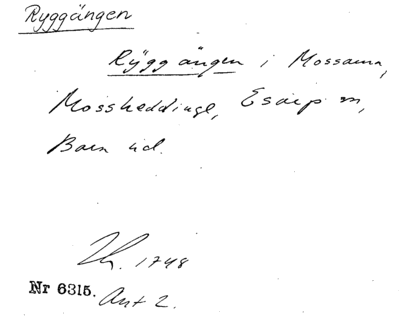 Ryggängen
Rÿgg ängen i Mossarna,
Mossheddinge, Esarp sn,
Bara hd.
Lh. 1748
Nr 6315. Akt 2.